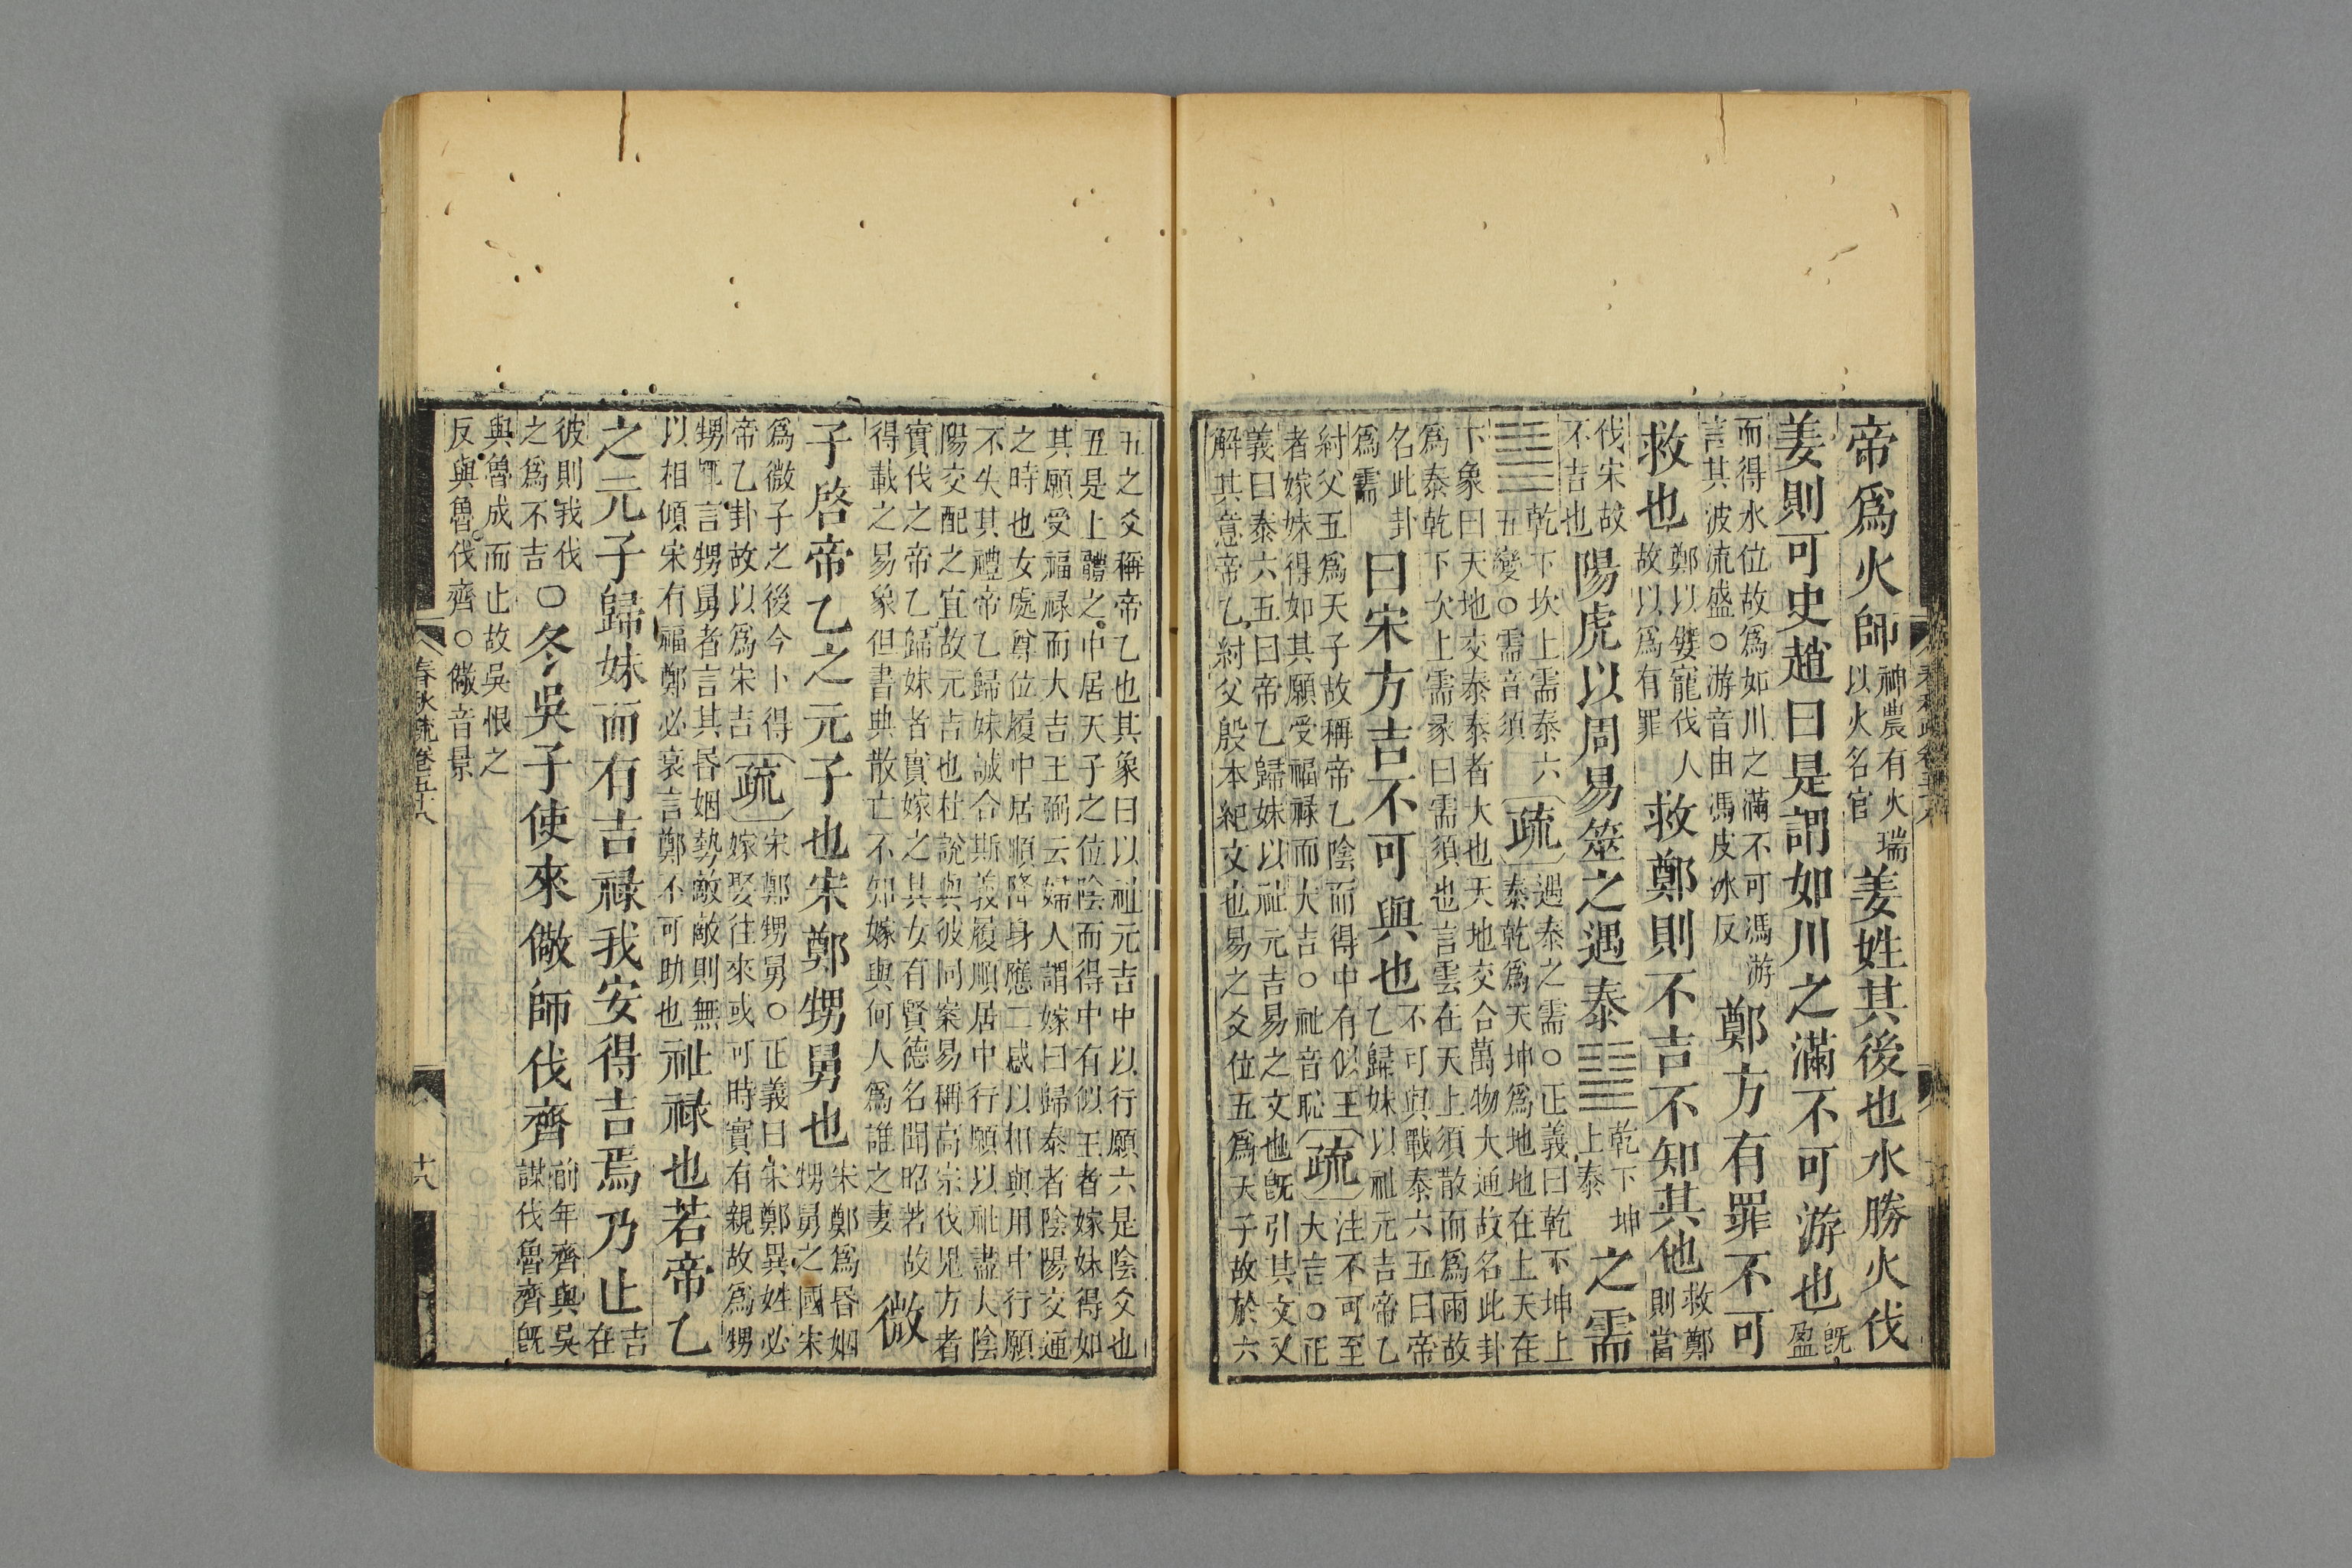 帝爲火師神農有火瑞以火名官姜姓其後也水勝火伐
姜則可史趙曰是謂如川之滿不可游也既盈
而得水位故爲如川之滿不可馮游言其波流盛○游音由馮皮冰反鄭方有罪不可
救也鄭以嬖寵伐人故以爲有罪救鄭則不吉不知其他救鄭則當
伐宋故不吉也陽虎以周易筮之遇泰䷊乾下坤上泰之需
䷄乾下坎上需泰六五變○需音須疏遇泰之需○正義曰乾下坤上泰乾爲天坤爲地地在上天在
下象曰天地交泰泰者大也天地交合萬物大通故名此卦
爲泰乾下坎上需彖曰需須也言雲在天上須散而爲雨故
名此卦爲需曰宋方吉不可與也不可與戰泰六五曰帝乙歸妹以祉元吉帝乙
紂父五爲天子故稱帝乙陰而得中有似王者嫁妹得如其願受福禄而大吉○祉音恥疏注不可至大吉○正
義曰泰六五曰帝乙歸妹以祉元吉易之文也既引其文又
解其意帝乙紂父殷本紀文也易之爻位五爲天子故於六
五之爻稱帝乙也其象曰以祉元吉中以行願六是陰爻也
五是上體之中居天子之位陰而得中有似王者嫁妹得如
其願受福禄而大吉王弼云婦人謂嫁曰歸泰者陰陽交通
之時也女處尊位履中居順降身應二感以相與用中行願
不失其禮帝乙歸妹誠合斯義履順居中行願以祉盡夫陰
陽交配之宜故元吉也杜說與彼同案易稱高宗伐鬼方者
實伐之帝乙歸妹者實嫁之其女有賢德名聞昭著故
得載之易象但書典散亡不知嫁與何人爲誰之妻微
子啓帝乙之元子也宋鄭甥舅也宋鄭爲昏姻甥舅之國宋
爲微子之後今卜得帝乙卦故以爲宋吉疏宋鄭甥舅○正義曰宋鄭異姓必嫁娶往來或可時實有親故爲甥
甥耳言甥舅者言其昏姻勢敵敵則無以相傾宋有福鄭必衰言鄭不可助也祉禄也若帝乙
之元子歸妹而有吉禄我安得吉焉乃止吉在
彼則我伐之爲不吉○冬吳子使來儆師伐齊前年齊與吳謀伐魯齊既
與魯成而止故吳恨之反與魯伐齊○儆音景
春秋疏卷五十八
十八